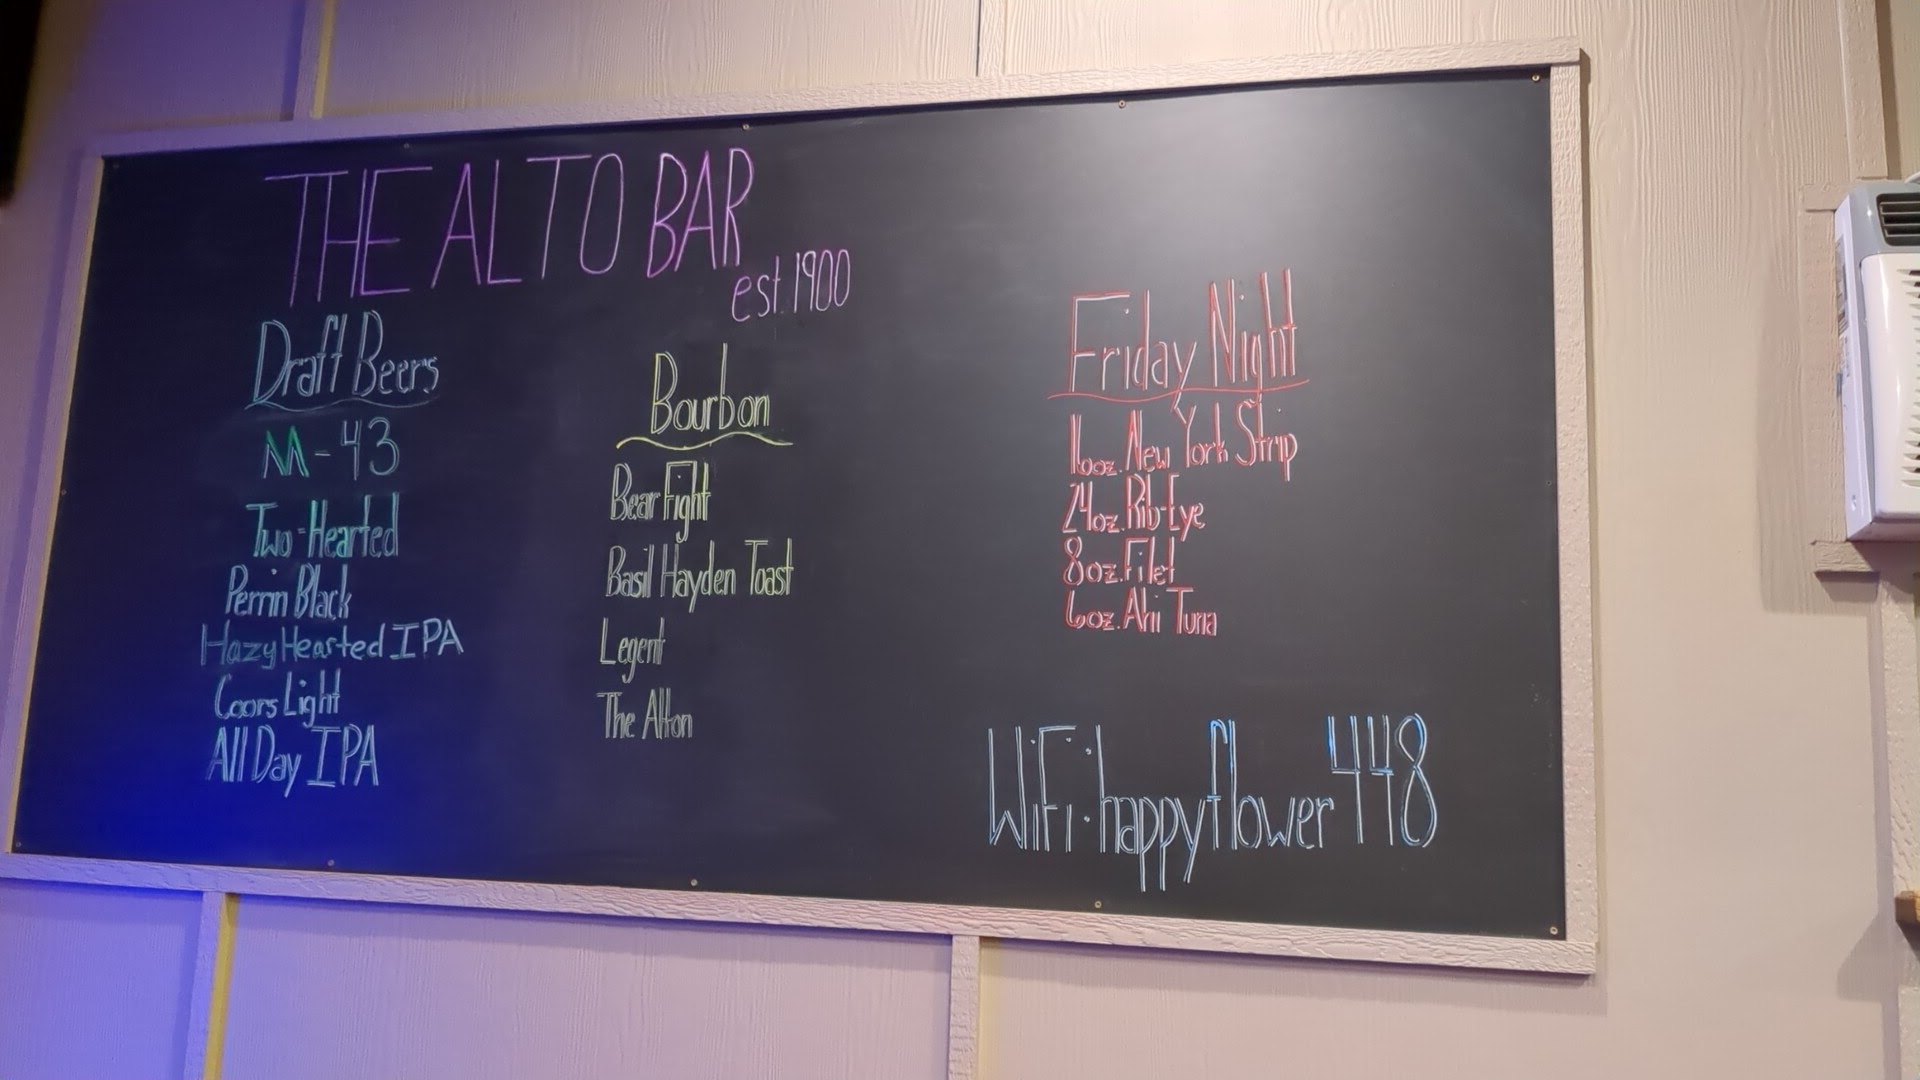 THE ALTO BAR
est. 1900
Draft Beers
M-43
Two-Hearted
Perrin Black
Hazy Hearted IPA
Coors Light
All Day IPA
Bourbon
Bear Fight
Basil Hayden Toast
Legent
The Alton
Friday Night
16oz. New York Strip
24oz. Rib-Eye
8oz. Filet
6oz. Ahi Tuna
WiFi: happyflower448